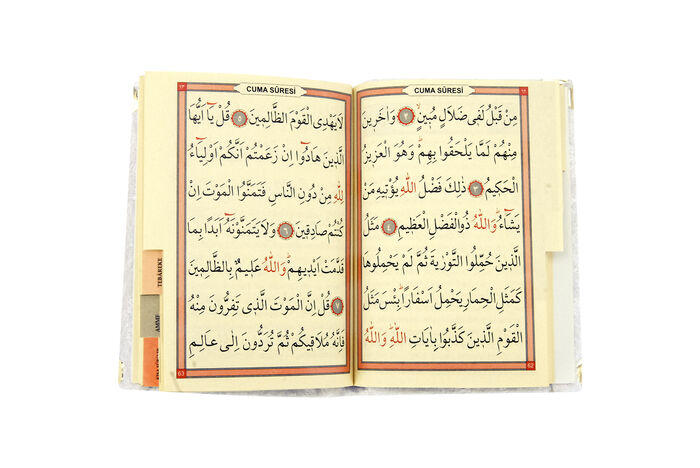 CUMA SÛRESİ
مِنْ قَبْلُ لَفٖى ضَلَالٍ مُبٖينٍ ٢ وَاٰخَرٖينَ
مِنْهُمْ لَمَّا يَلْحَقُوا بِهِمْ وَهُوَ الْعَزٖيزُ
الْحَكٖيمُ ٣ ذٰلِكَ فَضْلُ اللّٰهِ يُؤْتٖيهِ مَنْ
يَشَٓاءُ وَاللّٰهُ ذُوالْفَضْلِ الْعَظٖيمِ ٤ مَثَلُ
الَّذٖينَ حُمِّلُوا التَّوْرٰيةَ ثُمَّ لَمْ يَحْمِلُوهَا
كَمَثَلِ الْحِمَارِ يَحْمِلُ اَسْفَارًا بِئْسَ مَثَلُ
الْقَوْمِ الَّذٖينَ كَذَّبُوا بِاٰيَاتِ اللّٰهِ وَاللّٰهُ
62
CUMA SÛRESİ
لَا يَهْدِى الْقَوْمَ الظَّالِمٖينَ ٥ قُلْ يَٓا اَيُّهَا
الَّذٖينَ هَادُٓوا اِنْ زَعَمْتُمْ اَنَّكُمْ اَوْلِيَٓاءُ
لِلّٰهِ مِنْ دُونِ النَّاسِ فَتَمَنَّوُا الْمَوْتَ اِنْ
كُنْتُمْ صَادِقٖينَ ٦ وَلَا يَتَمَنَّوْنَهُٓ اَبَدًا بِمَا
قَدَّمَتْ اَيْدٖيهِمْ وَاللّٰهُ عَلٖيمٌ بِالظَّالِمٖينَ
٧ قُلْ اِنَّ الْمَوْتَ الَّذٖى تَفِرُّونَ مِنْهُ
فَاِنَّهُ مُلَاقٖيكُمْ ثُمَّ تُرَدُّونَ اِلٰى عَالِمِ
63
TEBAREKE
AMME